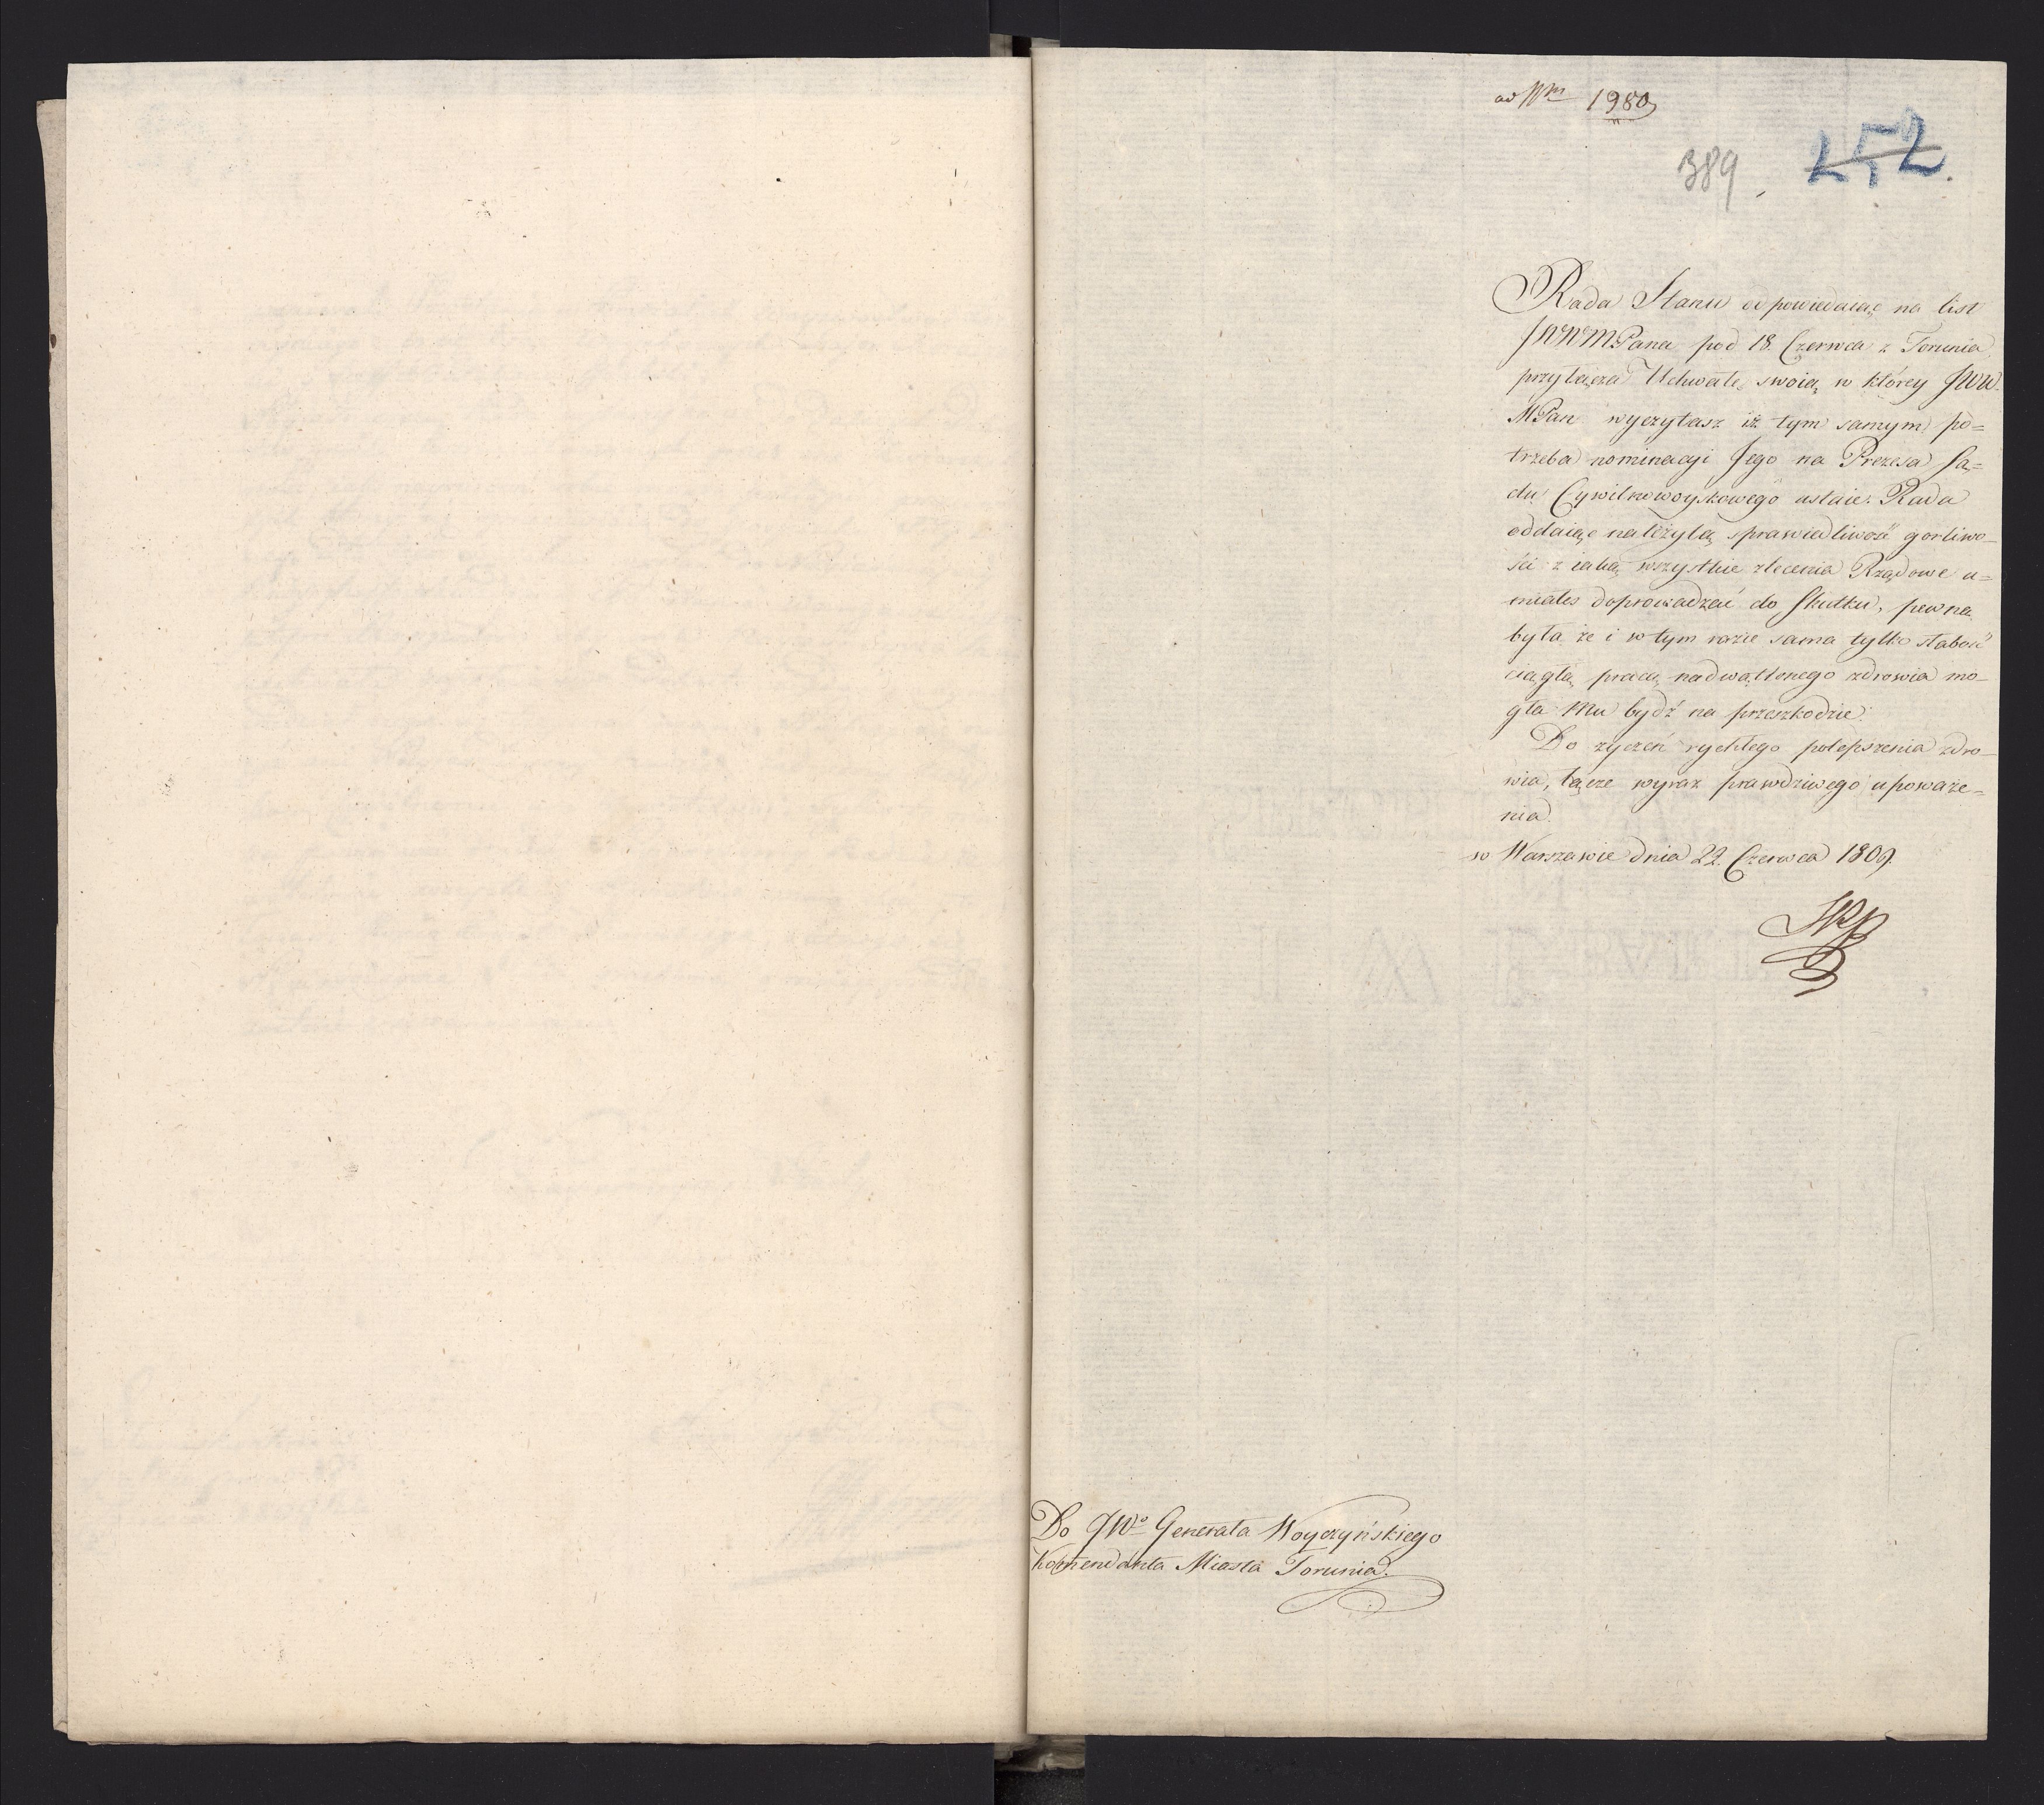 ad Nrm 1980
389. 252.
Rada Stanu odpowiedaiąc na list
JWWMPana pod 18. Czerwca z Torunia
przyłącza Uchwałę swoią w którey JWW.
MPan wyczytasz iż tym samym po=
trzeba nominacyi Jego na Prezesa Są=
du Cywilnowoyskowego ustaie. Rada
oddaiąc należytą sprawiedliwość gorliwo-
ści z iaką wszystkie zlecenia Rządowe u=
miałeś doprowadzać do Skutku, pewna
była że i w tym razie sama tylko słabość
ciągłą pracą nadwątlonego zdrowia mo-
gła Mu bydź na przeszkodzie.
Do życzeń rychłego polepszenia zdro-
wia, łącze wyraz prawdziwego upoważe=
nia.
w Warszawie dnia 22. Czerwca 1809.
Do JWo Generała Woyczyńskiego
Komendanta Miasta Torunia.